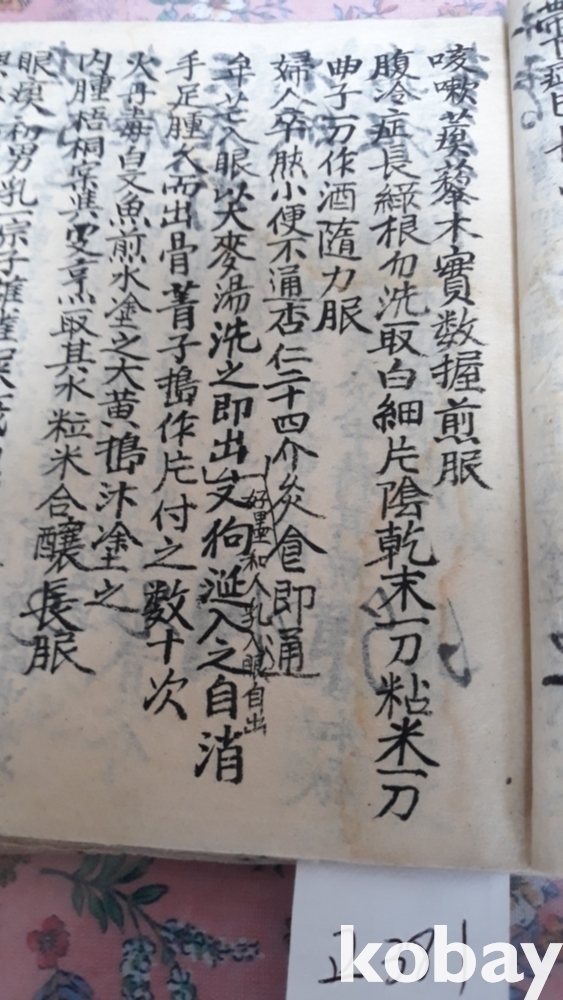 咳嗽蒺藜木實数握煎服
腹冷症長綠根勿洗取白細片陰乾末一刀粘米一刀
曲子一刀作酒隨力服
婦人卒热小便不通杏仁二十四介炎食即通
好墨和人乳入眼自出
牟芒入眼以大麥湯洗之即出又狗涎入之自消
手足腫久而出骨菁子搗作片付之数十次
火丹毒白文魚煎水塗之大黄搗汁塗之
內腫梧桐実烹取其水粒米合釀長服
眼疾初男乳一
帶下症
kobay